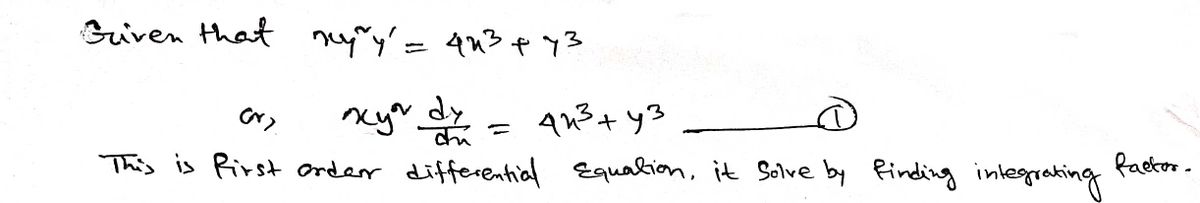 Given that xy²y' = 4x³ + y³
or, xy² dy/dx = 4x³ + y³ ——— ①
This is first order differential Equation. it Solve by finding integrating factor.